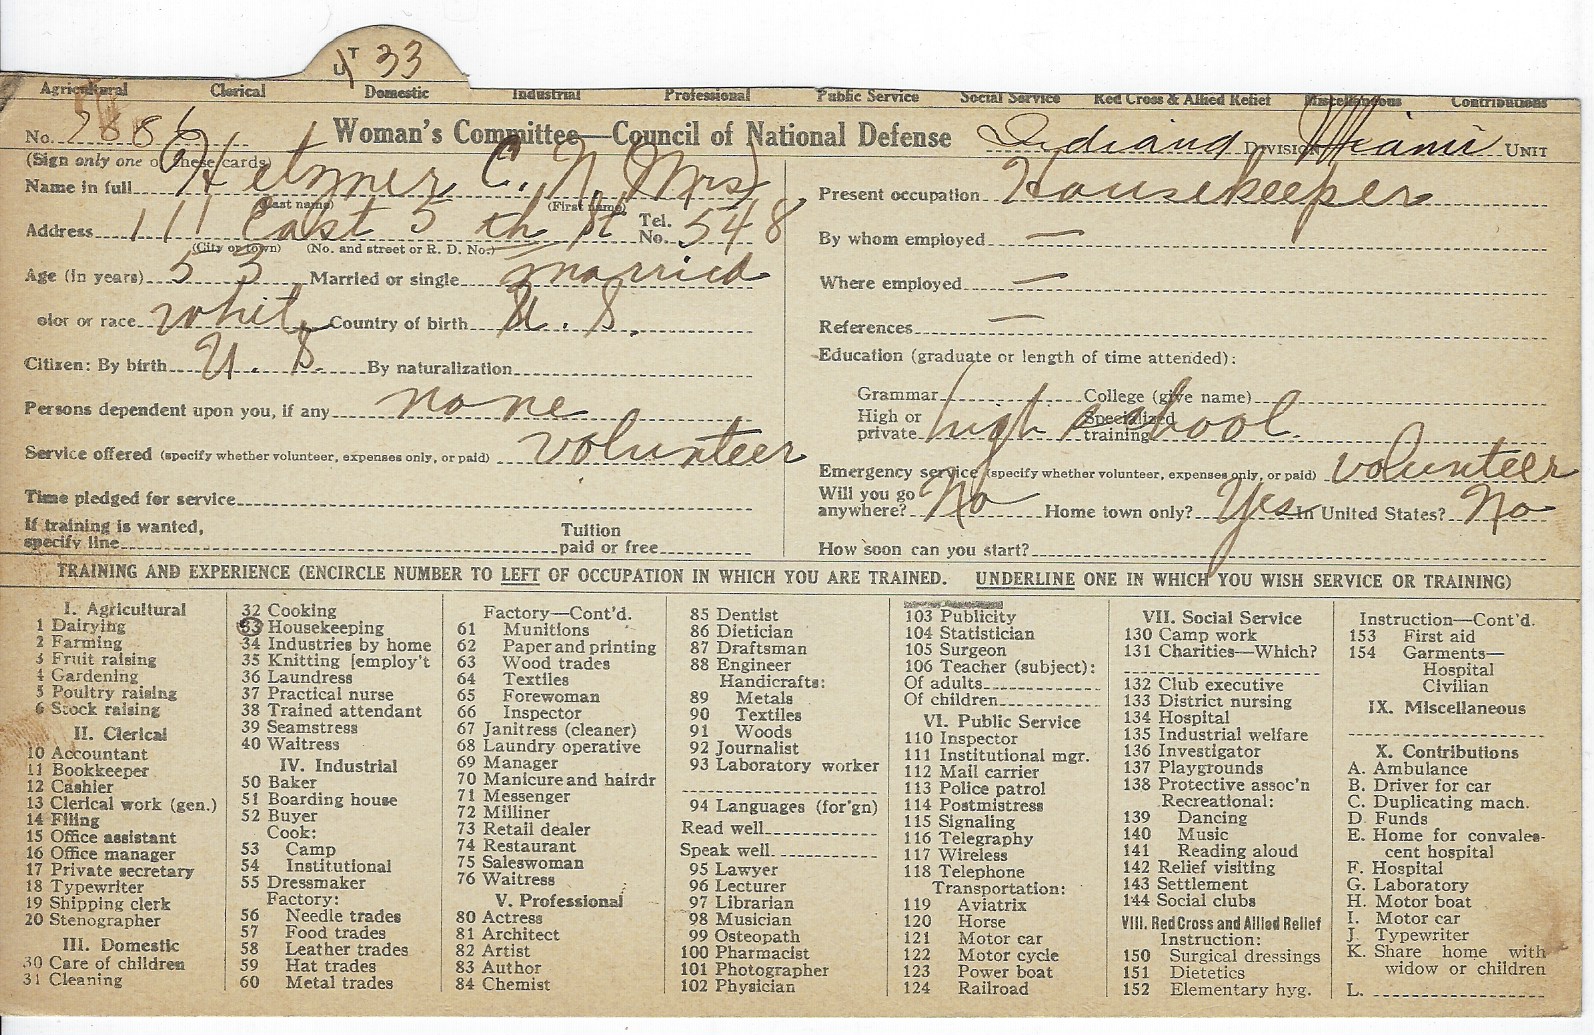 UT 33
Agricultural Clerical Domestic Industrial Professional Public Service Social Service Red Cross & Allied Relief Miscellaneous Contributions
No. 2886 Woman's Committee—Council of National Defense Indiana DIVISION Miami UNIT
(Sign only one of these cards)
Name in full Hetzner C. N. (Mrs)
(Last name) (First name)
Address 111 East 5 th St Tel. No. 548
(City or town) (No. and street or R. D. No.)
Age (in years) 53 Married or single married
olor or race white Country of birth U. S.
Citizen: By birth U. S. By naturalization
Persons dependent upon you, if any none
Service offered (specify whether volunteer, expenses only, or paid) volunteer
Time pledged for service
If training is wanted, specify line Tuition paid or free
Present occupation Housekeeper
By whom employed —
Where employed —
References —
Education (graduate or length of time attended):
Grammar College (give name)
High or private high school. Specialized training
Emergency service (specify whether volunteer, expenses only, or paid) volunteer
Will you go anywhere? No Home town only? Yes In United States? No
How soon can you start?
TRAINING AND EXPERIENCE (ENCIRCLE NUMBER TO LEFT OF OCCUPATION IN WHICH YOU ARE TRAINED. UNDERLINE ONE IN WHICH YOU WISH SERVICE OR TRAINING)
I. Agricultural
1 Dairying
2 Farming
3 Fruit raising
4 Gardening
5 Poultry raising
6 Stock raising
II. Clerical
10 Accountant
11 Bookkeeper
12 Cashier
13 Clerical work (gen.)
14 Filing
15 Office assistant
16 Office manager
17 Private secretary
18 Typewriter
19 Shipping clerk
20 Stenographer
III. Domestic
30 Care of children
31 Cleaning
32 Cooking
33 Housekeeping
34 Industries by home
35 Knitting [employ't
36 Laundress
37 Practical nurse
38 Trained attendant
39 Seamstress
40 Waitress
IV. Industrial
50 Baker
51 Boarding house
52 Buyer
Cook:
53 Camp
54 Institutional
55 Dressmaker
Factory:
56 Needle trades
57 Food trades
58 Leather trades
59 Hat trades
60 Metal trades
Factory—Cont'd.
61 Munitions
62 Paper and printing
63 Wood trades
64 Textiles
65 Forewoman
66 Inspector
67 Janitress (cleaner)
68 Laundry operative
69 Manager
70 Manicure and hairdr
71 Messenger
72 Milliner
73 Retail dealer
74 Restaurant
75 Saleswoman
76 Waitress
V. Professional
80 Actress
81 Architect
82 Artist
83 Author
84 Chemist
85 Dentist
86 Dietician
87 Draftsman
88 Engineer
Handicrafts:
89 Metals
90 Textiles
91 Woods
92 Journalist
93 Laboratory worker
94 Languages (for'gn)
Read well
Speak well
95 Lawyer
96 Lecturer
97 Librarian
98 Musician
99 Osteopath
100 Pharmacist
101 Photographer
102 Physician
103 Publicity
104 Statistician
105 Surgeon
106 Teacher (subject):
Of adults
Of children
VI. Public Service
110 Inspector
111 Institutional mgr.
112 Mail carrier
113 Police patrol
114 Postmistress
115 Signaling
116 Telegraphy
117 Wireless
118 Telephone
Transportation:
119 Aviatrix
120 Horse
121 Motor car
122 Motor cycle
123 Power boat
124 Railroad
VII. Social Service
130 Camp work
131 Charities—Which?
132 Club executive
133 District nursing
134 Hospital
135 Industrial welfare
136 Investigator
137 Playgrounds
138 Protective assoc'n
Recreational:
139 Dancing
140 Music
141 Reading aloud
142 Relief visiting
143 Settlement
144 Social clubs
VIII. Red Cross and Allied Relief
Instruction:
150 Surgical dressings
151 Dietetics
152 Elementary hyg.
Instruction—Cont'd.
153 First aid
154 Garments—
Hospital
Civilian
IX. Miscellaneous
X. Contributions
A. Ambulance
B. Driver for car
C. Duplicating mach.
D. Funds
E. Home for convales-
cent hospital
F. Hospital
G. Laboratory
H. Motor boat
I. Motor car
J. Typewriter
K. Share home with
widow or children
L.